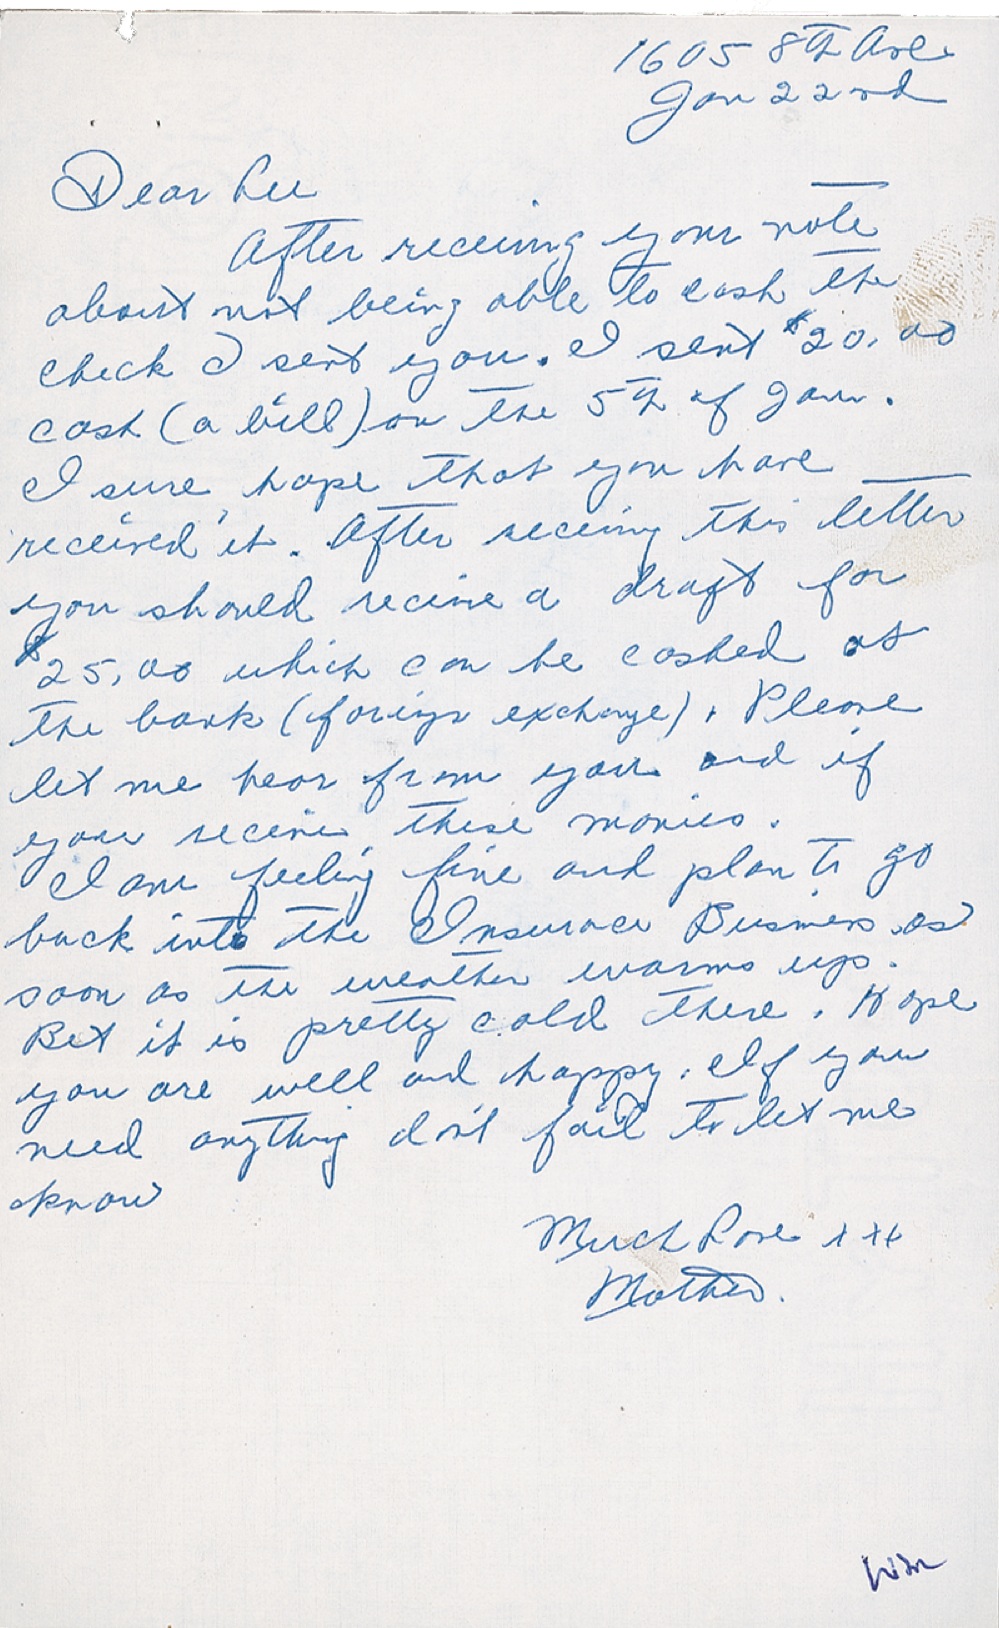 1605 8th Ave
Jan 22nd
Dear Lee
After receiving your note
about not being able to cash the
check I sent you. I sent $20.00
cash (a bill) on the 5th of Jan.
I sure hope that you have
received it. After receiving this letter
you should receive a draft for
$25.00 which can be cashed at
the bank (foriegn exchange). Please
let me hear from you and if
you receive these monies.
I am feeling fine and plan to go
back into the Insurace Business as
soon as the weather warms up.
But it is pretty cold there. Hope
you are well and happy. If you
need anything don't fail to let me
know
Much Love xxx
Mother.